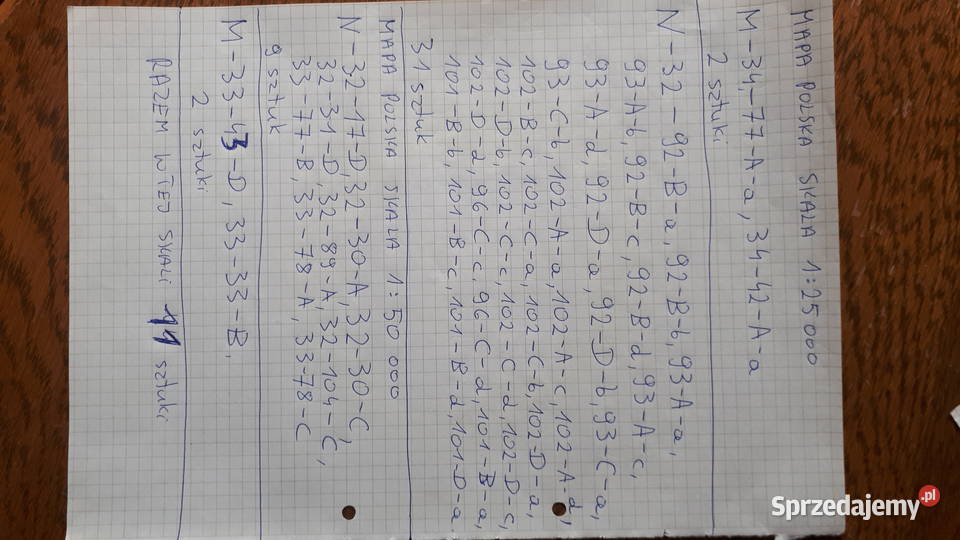 MAPA POLSKA SKALA 1:25 000
M-34-77-A-a, 34-42-A-a
2 sztuki
N-32-92-B-a, 92-B-b, 93-A-a,
93-Ab, 92-B-c, 92-B-d, 93-A-c,
93-A-d, 92-D-a, 92-D-b, 93-C-a,
93-C-b, 102-A-a, 102-A-c, 102-A-d,
102-B-c, 102-C-a, 102-C-b, 102-D-a,
102-D-b, 102-C-c, 102-C-d, 102-D-c,
102-D-d, 96-C-c, 96-C-d, 101-B-a,
101-B-b, 101-B-c, 101-B-d, 101-D-a
31 sztuk
MAPA POLSKA SKALA 1:50 000
N-32-17-D, 32-30-A, 32-30-C,
32-31-D, 32-89-A, 32-104-C,
33-77-B, 33-78-A, 33-78-C
9 sztuk
M-33-43-D, 33-33-B,
2 sztuki
RAZEM W TEJ SKALI 11 sztuki
Sprzedajemy.pl